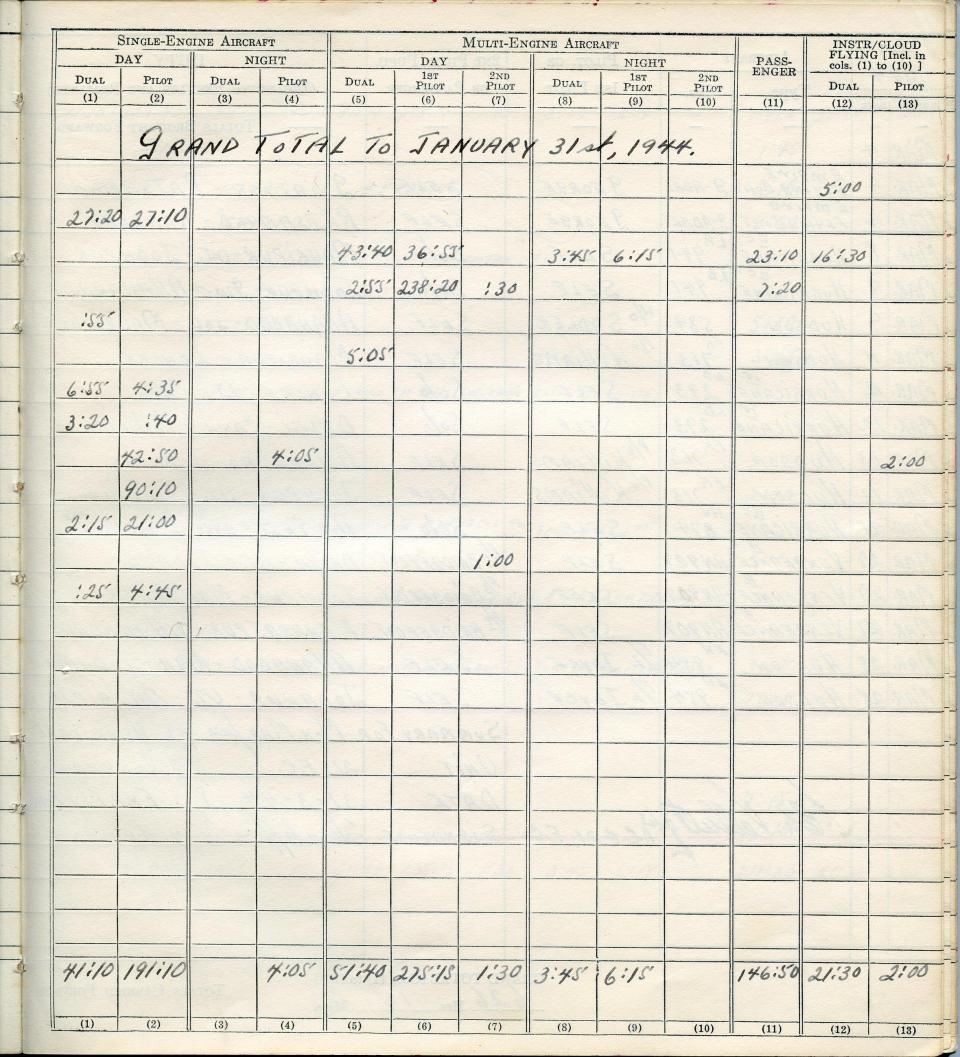 SINGLE-ENGINE AIRCRAFT MULTI-ENGINE AIRCRAFT PASSENGER INSTR/CLOUD FLYING [Incl. in cols. (1) to (10) ]
DAY NIGHT DAY NIGHT
DUAL PILOT DUAL PILOT DUAL 1ST PILOT 2ND PILOT DUAL 1ST PILOT 2ND PILOT DUAL PILOT
(1) (2) (3) (4) (5) (6) (7) (8) (9) (10) (11) (12) (13)
GRAND TOTAL TO JANUARY 31st, 1944.
5:00
27:20 27:10
43:40 36:55 3:45 6:15 23:10 16:30
2:55 238:20 :30 7:20
:55
5:05
6:55 4:35
3:20 :40
42:50 4:05 2:00
90:10
2:15 21:00
1:00
:25 4:45
41:10 191:10 4:05 51:40 275:15 1:30 3:45 6:15 146:50 21:30 2:00
(1) (2) (3) (4) (5) (6) (7) (8) (9) (10) (11) (12) (13)